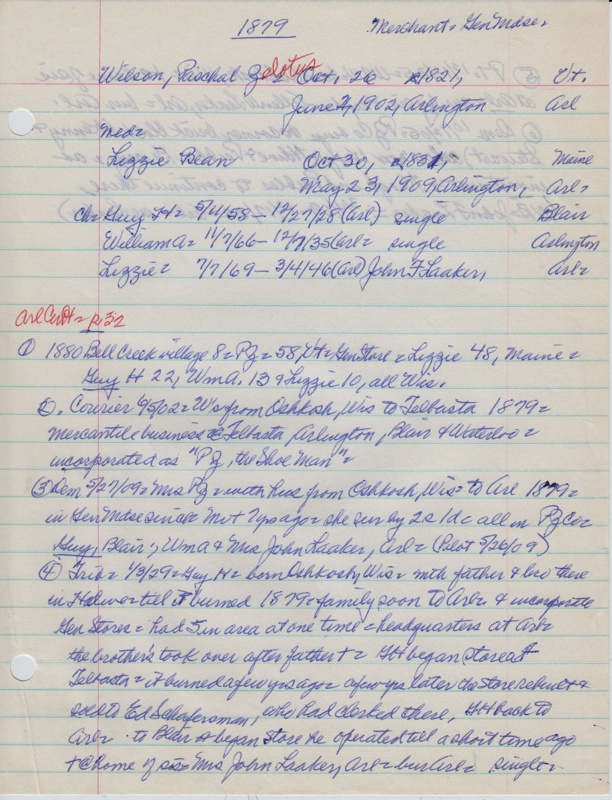 1879 Merchant = Gen Mdse =
Wilson, Paschal Zelotus = Oct. 26 1821, Vt.
June 2, 1902, Arlington Arl
med =
Lizzie Bean Oct 30, 1831, Maine
May 23, 1909, Arlington, Arl =
ch = Guy H = 5/11/58 - 12/27/28 (Arl) single Blair
William A = 11/7/66 - 12/7/35 (Arl = single Arlington
Lizzie = 7/7/69 - 3/4/46 (Arl) John F Laaker, Arl =
Arl = p 32
① 1880 Bell Creek village 8 = PZ = 58, Vt = Gen Store = Lizzie 48, Maine =
Guy H 22, Wm A. 13 & Lizzie 10, all Wis.
②. Courier = Ws from Oshkosh, Wis to Telbasta 1879 =
mercantile business @ Telbasta, Arlington, Blair & Waterloo =
incorporated as "PZ, the Shoe Man" =
③ Dem 5/27/09 = Mrs PZ = with hus from Oshkosh, Wis = to Arl 1879 =
in Gen Mdse since = 7 yrs ago = she sur by 2s 1d = all in PZ Co =
Guy, Blair; Wm A & Mrs John Laaker, Arl = (Pilot 5/26/09)
④ Trib = 1/3/29 = Guy H = born Oshkosh, Wis = with father & bro there
in till it burned 1879 = family soon to Arl = & incorporate
Gen Stores = had 5 in area at one time = headquarters at Arl =
the brothers took over after father + = GH began store at
Telbasta = it burned a few yrs ago = a few yrs later the store rebuilt &
sold to Ed Schafersman, who had clerked there, GH back to
Arl = to Blair & began store he operated till a short time ago
+ @ home of sis = Mrs John Laaker, Arl = bur Arl = single =